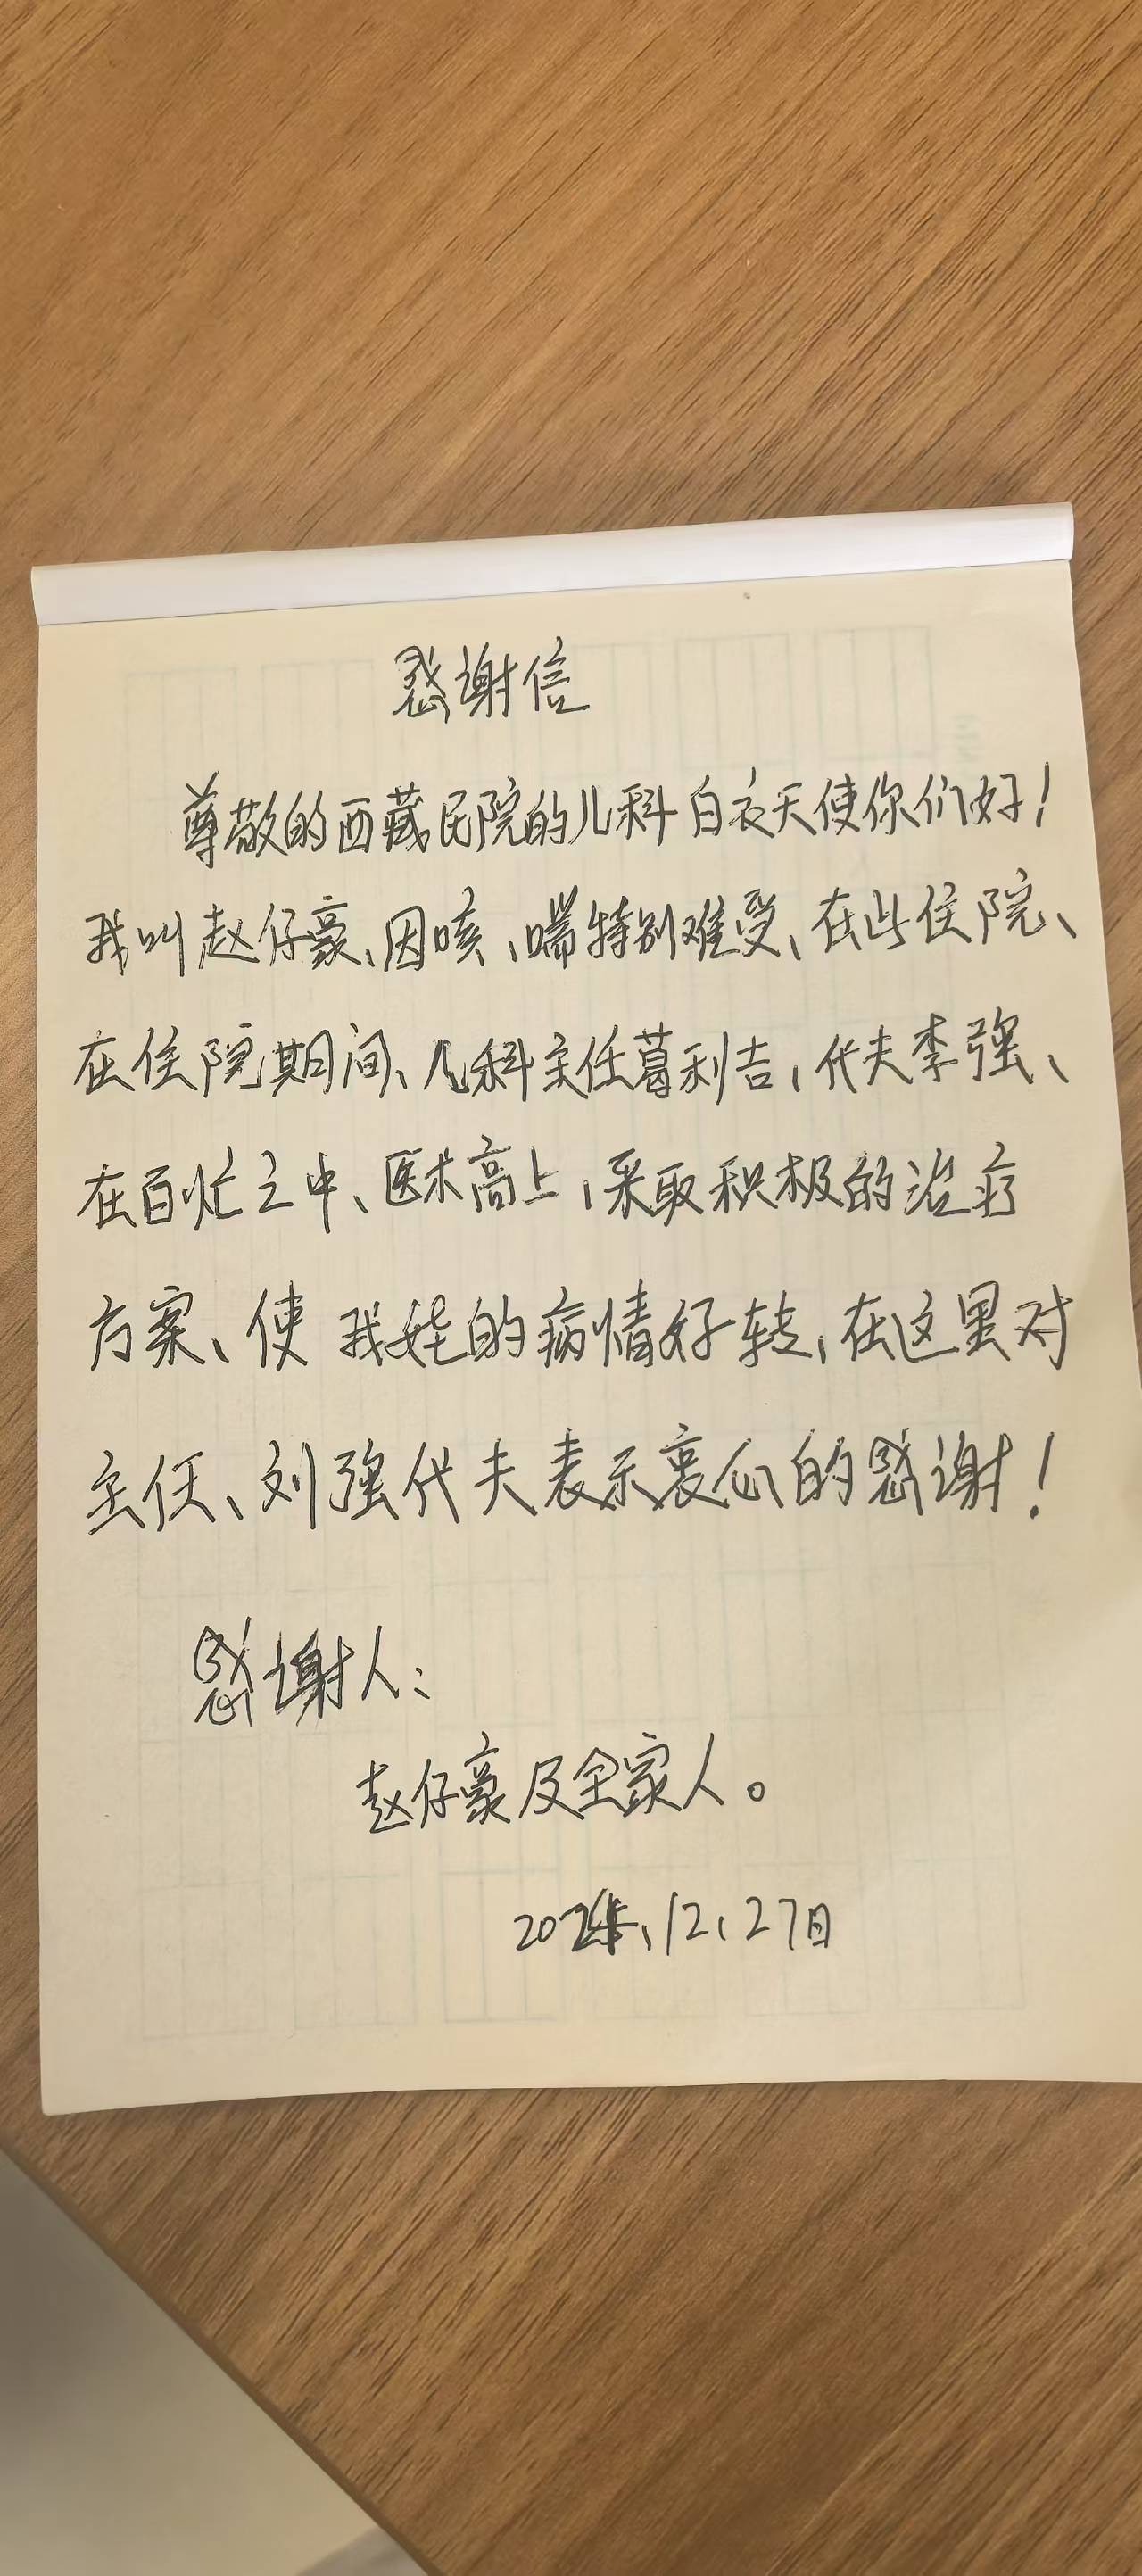 感谢信
尊敬的西藏民院的儿科白衣天使你们好!
我叫赵仔豪、因咳、喘特别难受、在此住院、
在住院期间、儿科主任葛利吉、代夫李强、
在百忙之中、医术高上、采取积极的治疗
方案、使我娃的病情好转、在这里对
主任、刘强代夫表示衷心的感谢!
感谢人:
赵仔豪及全家人。
12、27日